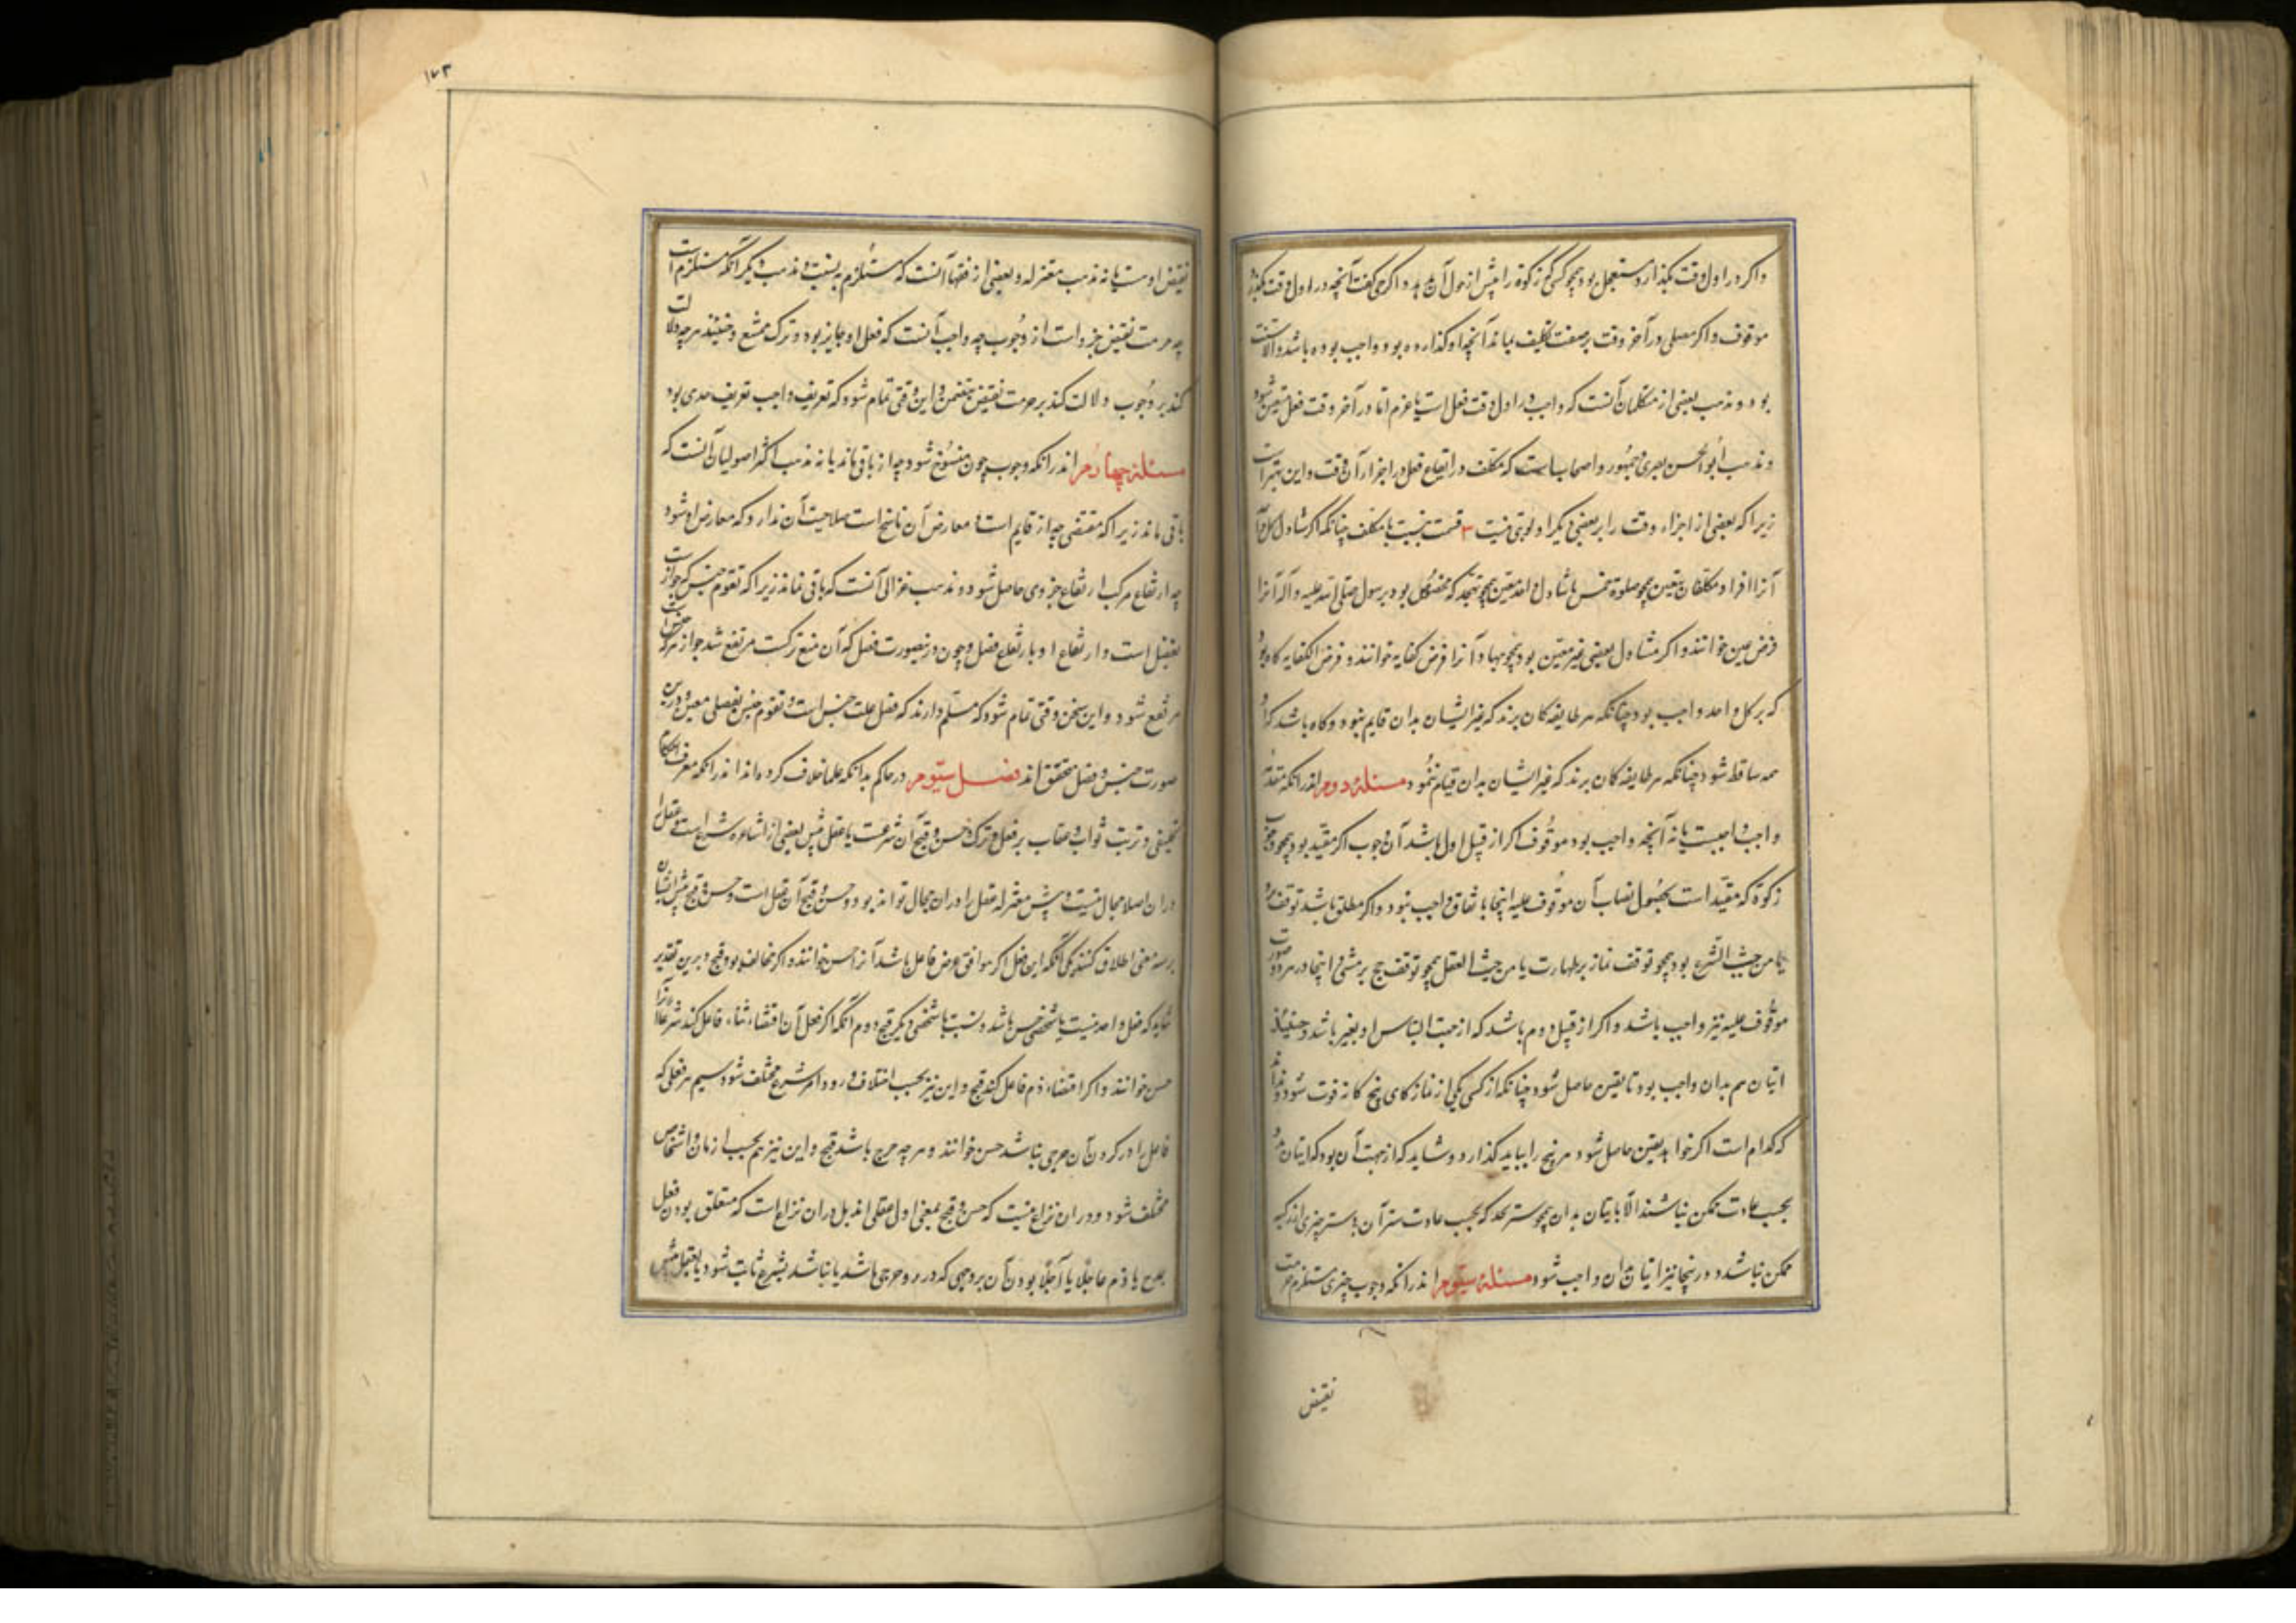 واکر در اول وقت بکذارد مستعجل بود همچو کسی که زکوة را پیش از حول آن بدهد و اکر کسی گفت آنچه در اول وقت بکذارد
موقوف و اکر مصلی در آخر وقت بر صفت تکلیف بماند آنچه او کذارده بود واجب بوده باشد و الا سنت
بود و مذهب بعضی از متکلمان آنست که واجب در اول وقت فعل است یا عزم اما در آخر وقت فعل متعین شود
و مذهب ابو الحسن بصری و جمهور و اصحاب است که مکلف در ایقاع فعل در اجزاء آن وقت و این بهتر است
زیرا که بعضی از اجزاء وقت را بر بعضی دیکر اولویتی نیست ۳ قسمت بنسبت با مکلف چنانکه اکر متناول کل
آنرا افراد مکلفان بتعین همچو صلوة خمس یا متناول واحد معین همچو تهجد که مخصوص بود برسول صلی الله علیه و آله آنرا
فرض عین خوانند و اکر متناول بعضی غیر معین بود همچو جهاد آنرا فرض کفایه خوانند و فرض الکفایه کاه بود
که بر کل واحد واجب بود چنانکه هر طایفه کان برند که غیر ایشان بدان قایم نبود و کاه باشد که از
همه ساقط شود چنانکه هر طایفه کان برند که غیر ایشان بدان قیام نمود مسئله دوم اندر انکه مقدمه
واجب واجبست یا نه آنچه واجب بود موقوف اکر از قبل اول باشد آن وجوب اکر مقید بود همچو وجوب
زکوة که مقید است بحصول نصاب آن موقوف علیه اینجا باتفاق واجب نبود و اکر مطلق باشد توقف
یا من حیث الشرع بود همچو توقف نماز بر طهارت یا من حیث العقل همچو توقف حج بر مشی و اینجا در هر دو صورت
موقوف علیه نیز واجب باشد و اکر از قبل دوم باشد که از جهت التباس او بغیر باشد و حینئذ
اتیان هم بدان واجب بود تا یقین حاصل شود چنانکه از کسی یکی از نمازهای پنج کانه فوت شود و نداند
که کدام است اکر خواهد یقین حاصل شود هر پنج را بباید کذارد و شاید که از جهت آن بود که اتیان
بحسب عادت ممکن نباشد الا باتیان بدان همچو ستر که بحسب عادت ستر آن بی ستر چیزی اندک
ممکن نباشد و در اینجا نیز اتیان بدان واجب شود مسئله سیوم اندر انکه وجوب چیزی مستلزم حرمت
نقیض
۱۷۳
نقیض اوست یا نه مذهب معتزله و بعضی از فقها آنست که مستلزم نیست و مذهب دیکر انکه مستلزم است
چه حرمت نقیض جزو است از وجوب چه واجب آنست که فعل او جایز بود و ترک ممتنع و حینئذ هرچه دلالت
کند بر وجوب دلالت کند بر حرمت نقیض بتضمن و این وقتی تمام شود که تعریف واجب تعریف حدی بود
مسئله چهارم اندر انکه وجوب چون منسوخ شود جواز باقی ماند یا نه مذهب اکثر اصولیان آنست که
باقی ماند زیرا که مقتضی جواز قایم است و معارض آن ناسخ است صلاحیت آن ندارد که معارض او شود
چه ارتفاع مرکب بارتفاع جزوی حاصل شود و مذهب غزالی آنست که باقی نماند زیرا که تقوم جنس که جواز است
بفصل است و ارتفاع او بارتفاع فصل و چون در نصورت فصل که آن منع ترکست مرتفع شد جواز هر که جنس است
مرتفع شود و این سخن وقتی تمام شود که مسلم دارند که فصل علت جنس است و تقوم جنس بفصلی معین و درین
صورت جنس و فصل محقق اند فصل سیوم در حاکم بدانکه علما خلاف کرده اند اندر انکه معرف احکام
تکلیفی و ترتب ثواب و عقاب بر فعل و ترک و حسن و قبح آن شرعست یا عقل پیش بعضی از اشاعره شرع است و عقل را
دران اصلا مجال نیست و پیش معتزله عقل را دران مجال تواند بود و حسن و قبح آن عقل است و حسن و قبح پیش ایشان
بر سه معنی اطلاق کنند یکی آنکه این فعل اکر موافق غرض فاعل باشد آنرا حسن خوانند و اکر مخالف بود قبح و برین تقدیر
شاید که فعل واحد نسبت با شخصی حسن باشد و نسبت با شخصی دیکر قبح دوم آنکه اکر فعل آن اقتضاء ثناء فاعل کند شرعا آنرا
حسن خوانند و اکر اقتضاء ذم فاعل کند قبح و این نیز بحسب اختلاف ورود امر شرع مختلف شود سیم هر فعلی که
فاعل را در کردن آن حرجی نباشد حسن خوانند و هرچه حرج باشد قبح و این نیز هم بحسب ازمان و اشخاص
مختلف شود و دران نزاع نیست که حسن و قبح بمعنی اول عقلی اند بل دران نزاع است که متعلق بودن فعل
بمدح یا ذم عاجلا یا آجلا بودن آن بر وجهی که در و حرجی باشد یا نباشد بشرع ثابت شود یا بعقل پیش